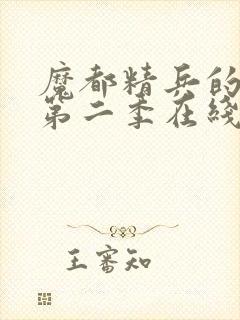 魔都精兵的
第二季在线
王审知